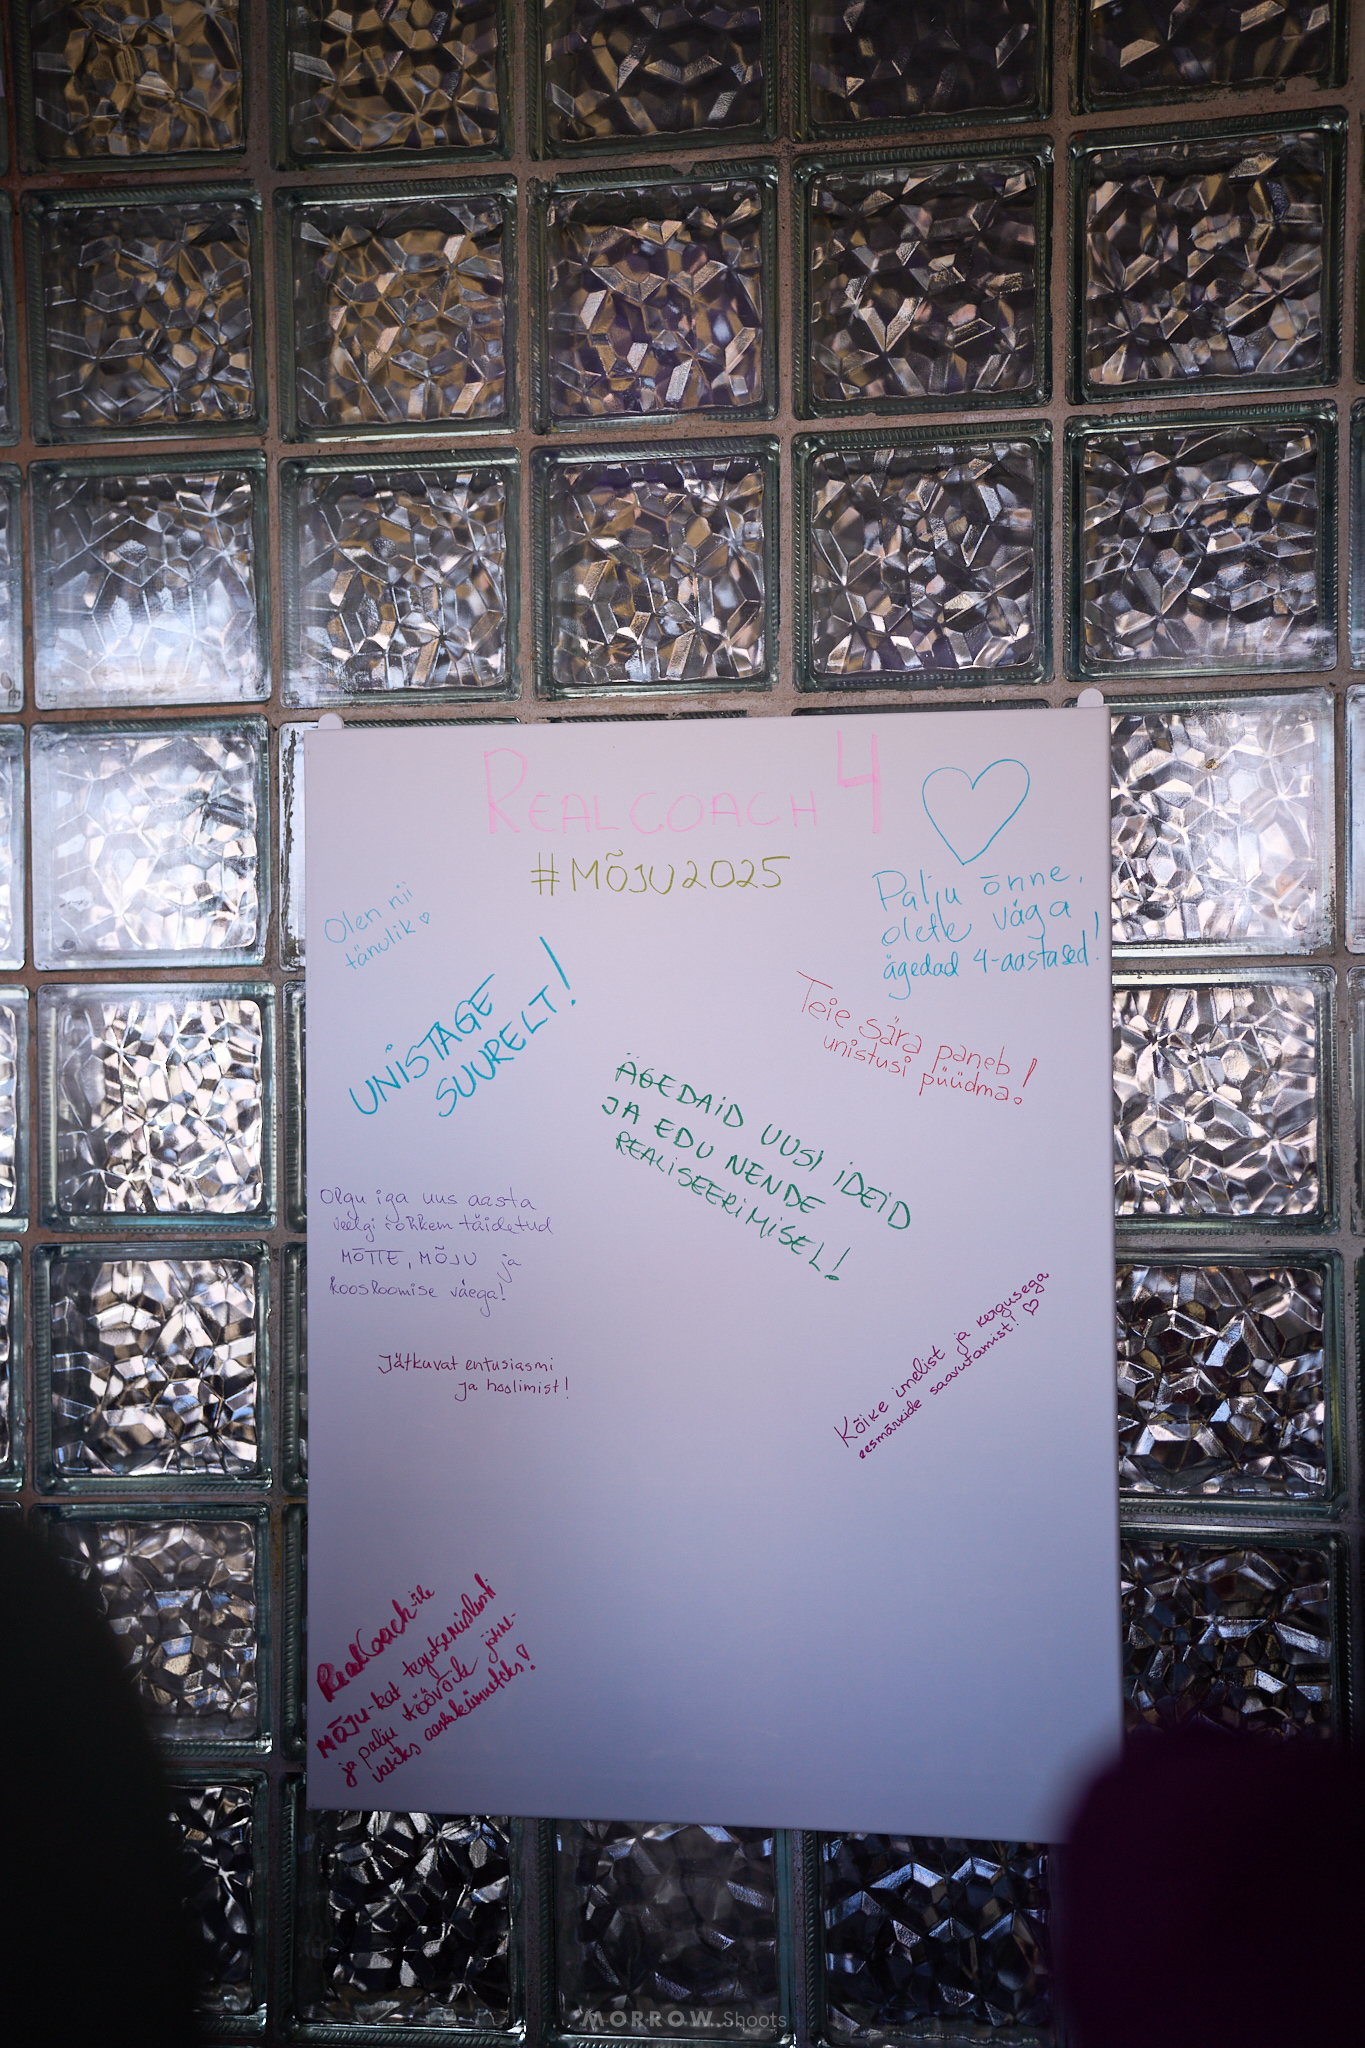 REALCOACH 4
#MÕJU2025
Olen nii
tänulik
Palju õnne,
olete väga
ägedad 4-aastased!
UNISTAGE
SUURELT!
Teie sära paneb
unistusi püüdma!
ÄGEDAID UUSI IDEID
JA EDU NENDE
REALISEERIMISEL!
Olgu iga uus aasta
veelgi rohkem täidetud
MÕTTE, MÕJU ja
koosloomise väega!
Jätkuvat entusiasmi
ja hoolimist!
Kõike imelist ja kergusega
eesmärkide saavutamist!
RealCoach-ile
MÕJU-kat tegutsemislusti
ja palju töövõite järgne-
vateks aastakümneteks!
MORROW.Shoots